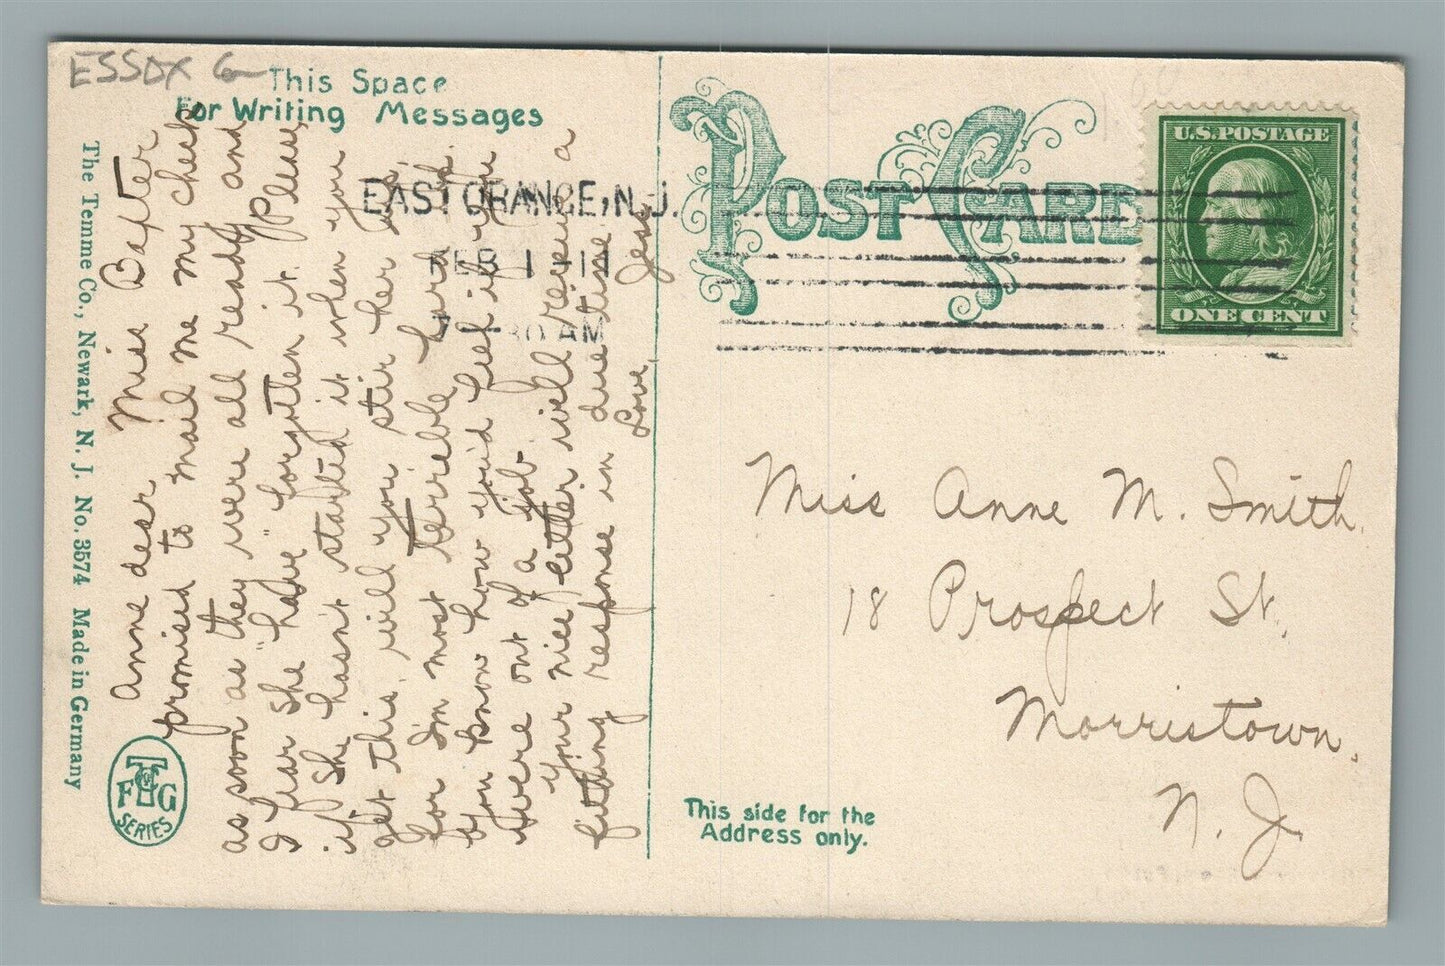 ESSEX Co
This Space
For Writing Messages
The Temme Co., Newark, N. J. No. 3574 Made in Germany
Anne dear Miss Baxter
promised to mail me my check
as soon as they were all ready and
I fear she "have" forgotten it. Please
if she hasn't started it when you
get this, will you stir her
for I'm most terrible hard
you know how you'd feel if you
were out of a job.
Your nice letter will receive a
fitting response in due time.
Love, Jean
T F & G
SERIES
EAST ORANGE, N. J.
FEB 1 - 11
7 - 30 AM
POST CARD
U.S. POSTAGE
ONE CENT
Miss Anne M. Smith,
18 Prospect St.,
Morristown,
N. J.
This side for the
Address only.